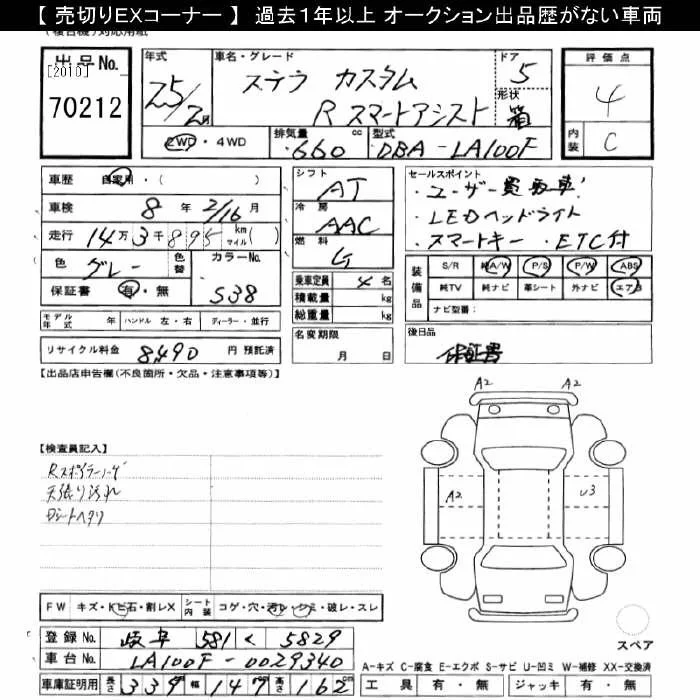 【 売切りEXコーナー 】 過去1年以上 オークション出品歴がない車両
出品No.
[2010]
70212
年式
25/2月
車名・グレード
ステラ カスタム
R スマートアシスト
ドア
5
形状
箱
評価点
4
内装
C
2WD・4WD
排気量
660 cc
型式
DBA-LA100F
車歴 自家用・( )
車検 8年 2/16月
走行 14万3千895 km マイル( )
色 グレー
色替
カラーNo.
S38
保証書 有・無
シフト
AT
冷房
AAC
燃料
G
乗車定員 4名
積載量 kg
総重量 kg
名変期限
月 日
セールスポイント
・ユーザー買取車!
・LEDヘッドライト
・スマートキー ・ETC付
装備品
S/R 純A/W P/S P/W ABS
純TV 純ナビ 革シート 外ナビ エアB
ナビ型番:
モデル年式 年 ハンドル 左・右 ディーラー・並行
リサイクル料金 8490 円 預託済
後日品
保証書
【出品店申告欄(不良箇所・欠品・注意事項等)】
【検査員記入】
Rスポイラーハゲ
天張り汚れ
Dシートヘタリ
A2 A2
A2 U3
FW キズ・トビ石・割レX
シート内装 コゲ・穴・汚レ・シミ・破レ・スレ
スペア
登録No. 岐阜 581 く 5829
車台No. LA100F-0029340
A-キズ C-腐食 E-エクボ S-サビ U-凹ミ W-補修 XX-交換済
車庫証明用 長さ 339 幅 147 高さ 162 cm
工具 有・無 ジャッキ 有・無